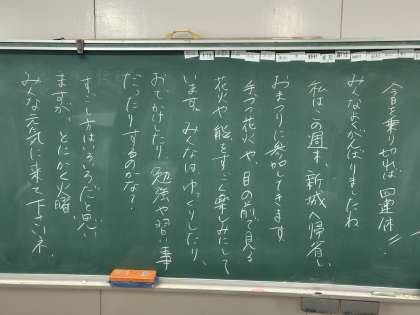 今日を乗り切れば四連休!!
みんなよくがんばりましたね
私はこの週末、新城へ帰省し、
おまつりに参加してきます。
手づつ花火や、目の前で見る
花火や能をすごく楽しみにして
います。みんなはゆっくりしたり、
おでかけしたり、勉強や習い事
だったりするのかな?
すごし方はいろいろだと思い
ますが、とにかく火曜、
みんな元気に来て下さいネ。